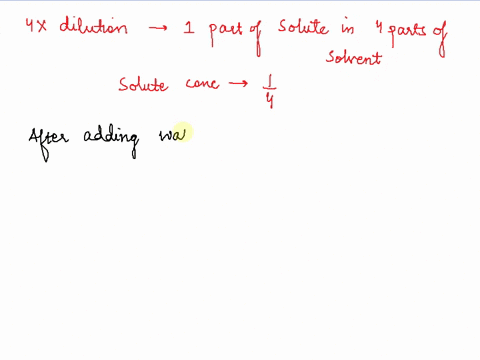 4x dilution → 1 part of solute in 4 parts of
solvent
Solute conc → 1/4
After adding wa